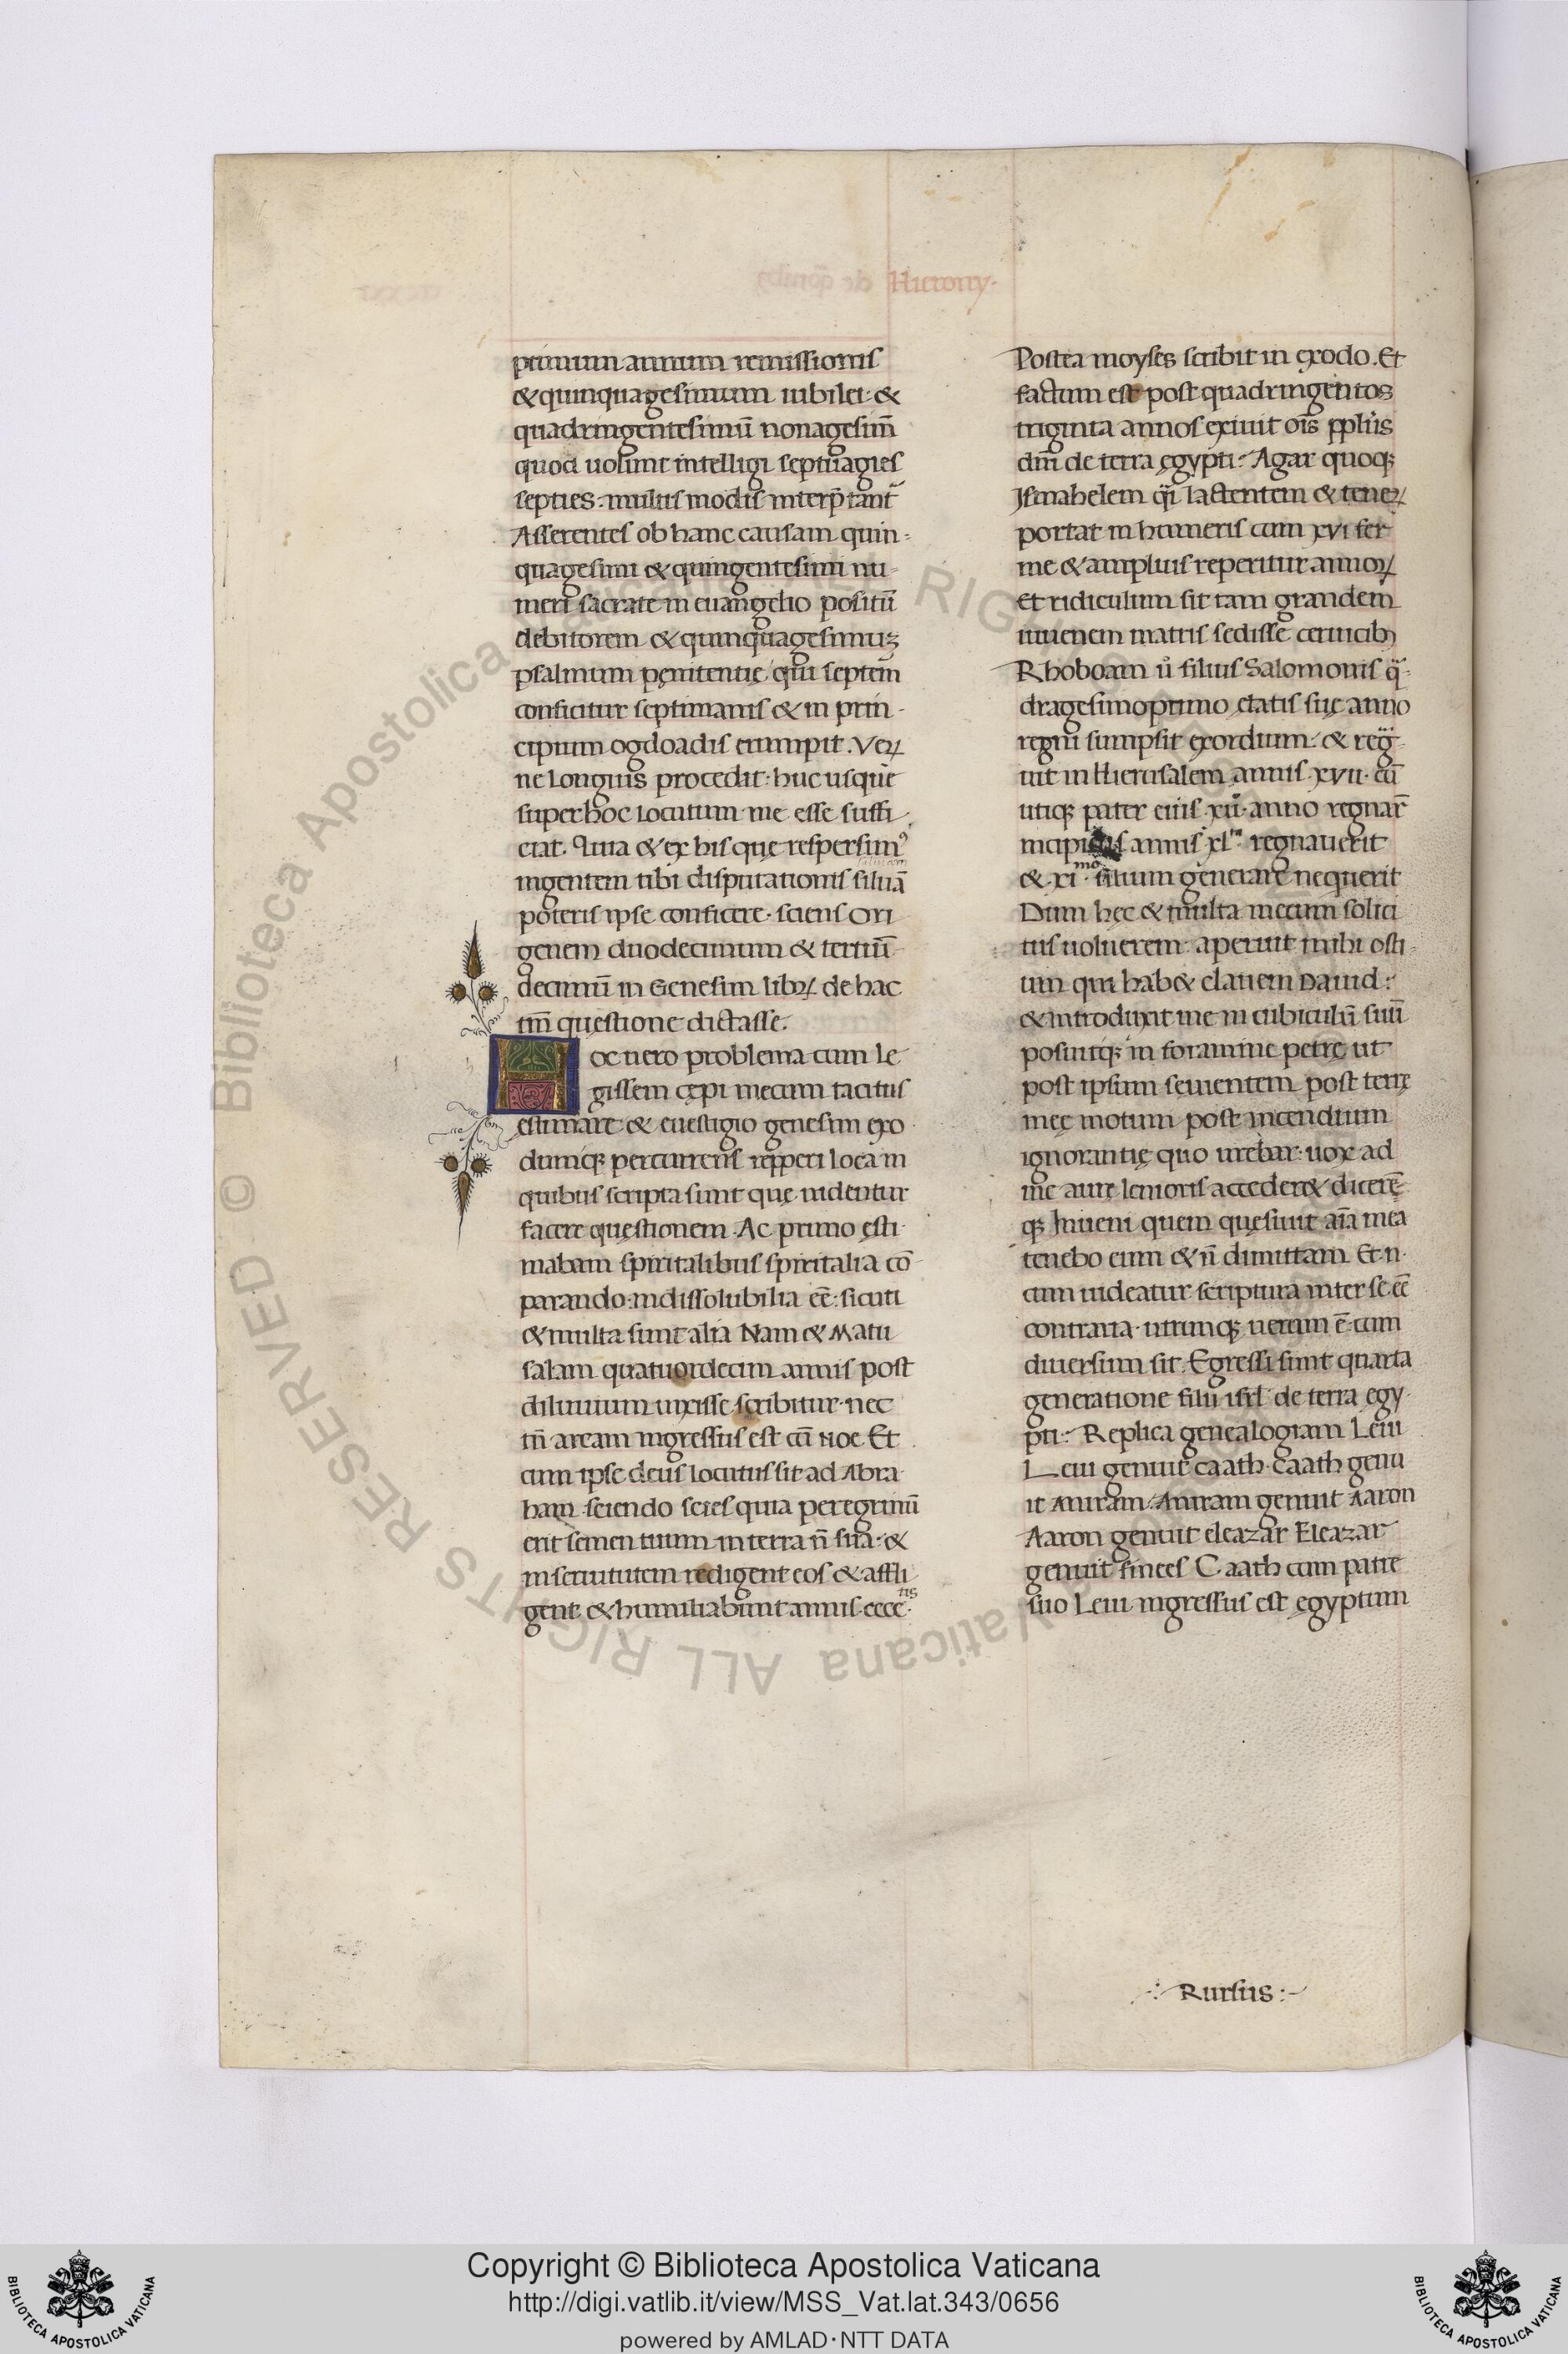 Hierony·
primum annum remissionis
& quinquagesimum iubilei· &
quadringentesimū nonagesim̄
quod uolunt intelligi septuagies
septies· multis modis interp̄tant̄
Asserentes ob hanc causam quin-
quagesimi & quingentesimi nu-
meri sacrate in euangelio positū
debitorem & quinquagesimuʒ
psalmum pęnitentię qui septem
conficitur septimanis & in prin-
cipium ogdoadis erumpit. Veꝝ
ne longius procedit· huc usque
super hoc locutum me esse suffi-
ciat. Qura & ex his quę respersimꝰ
ingentem tibi disputationis siluā
poteris ipse conficere· sciens Ori
genem duodecimum & tertiū
decimū in Genesim libꝝ de hac
tm̄ quęstione dictasse.
Hoc uero problema cum le
gissem cępi mecum tacitus
estimare· & euestigio genesim exo
dumqꝫ percurrens repperi loca in
quibus scripta sunt quę uidentur
facere quęstionem. Ac primo ęsti
mabam spiritalibus spiritalia cō
parando· indissolubilia eē· sicuti
& multa sunt alia Nam & Matu
salam quatuordecim annis post
diluuium uixisse scribitur· nec
tn̄ arcam ingressus est cū Noe. Et
cum ipse deus locutus sit ad Abra
ham· sciendo scies quia peregrinū
erit semen tuum in terra n̄ sua· &
in seruitutem redigent eos & affli
gent & humiliabunt annis cccc·tis
Postea moyses scribit in exodo. Et
factum est post quadringentos
triginta annos exiuit oīs ppl'us
dn̄i de terra ęgypti· Agar quoqꝫ
Ismahelem q̄i lactentem & teneꝝ
portat in humeris cum xvi fer
me & amplius reperitur annoꝝ
et ridiculum sit tam grandem
iuuenem matris sedisse ceruicibꝫ
Rhoboam u̓ filius Salomonis q̈-
dragesimoprimo ętatis suę anno
regni sumpsit exordium· & reg̈-
uit in Hierusalem annis xvii· cū
utiqꝫ pater eius xii· anno regnar̄
incipiens annis xl· regnauerit
& xi·mo filium generare nequerit
Dum hęc & multa mecum solici
tus uoluerem· aperuit mihi osti-
um qui hab& clauem Dauid·
& introduxit me in cubiculū suū
posuitqꝫ in foramine petrę ut
post ipsum seuientem post terrę
meę motum post incendium
ignorantię quo urebar· uox ad
me aurę lenioris acceder& dicerē-
qꝫ Inueni quem quęsiuit aīa mea
tenebo eum & n̄ dimittam Et n·
cum uideatur scriptura inter se eē
contraria· utrunqꝫ uerum ē· cum
diuersum sit. Egressi sunt quarta
generatione filii isrl' de terra ęgy-
pti· Replica genealogiam Leui
Leui genuit caath· Caath genu
it Amram· Amram genuit Aaron
Aaron genuit eleazar Eleazar
genuit finees Caath cum patre
suo Leui ingressus est ęgyptum
Rursus
Copyright © Biblioteca Apostolica Vaticana
http://digi.vatlib.it/view/MSS_Vat.lat.343/0656
powered by AMLAD·NTT DATA
BIBLIOTECA APOSTOLICA VATICANA
BIBLIOTECA APOSTOLICA VATICANA
© Biblioteca Apostolica Vaticana ALL RIGHTS RESERVED